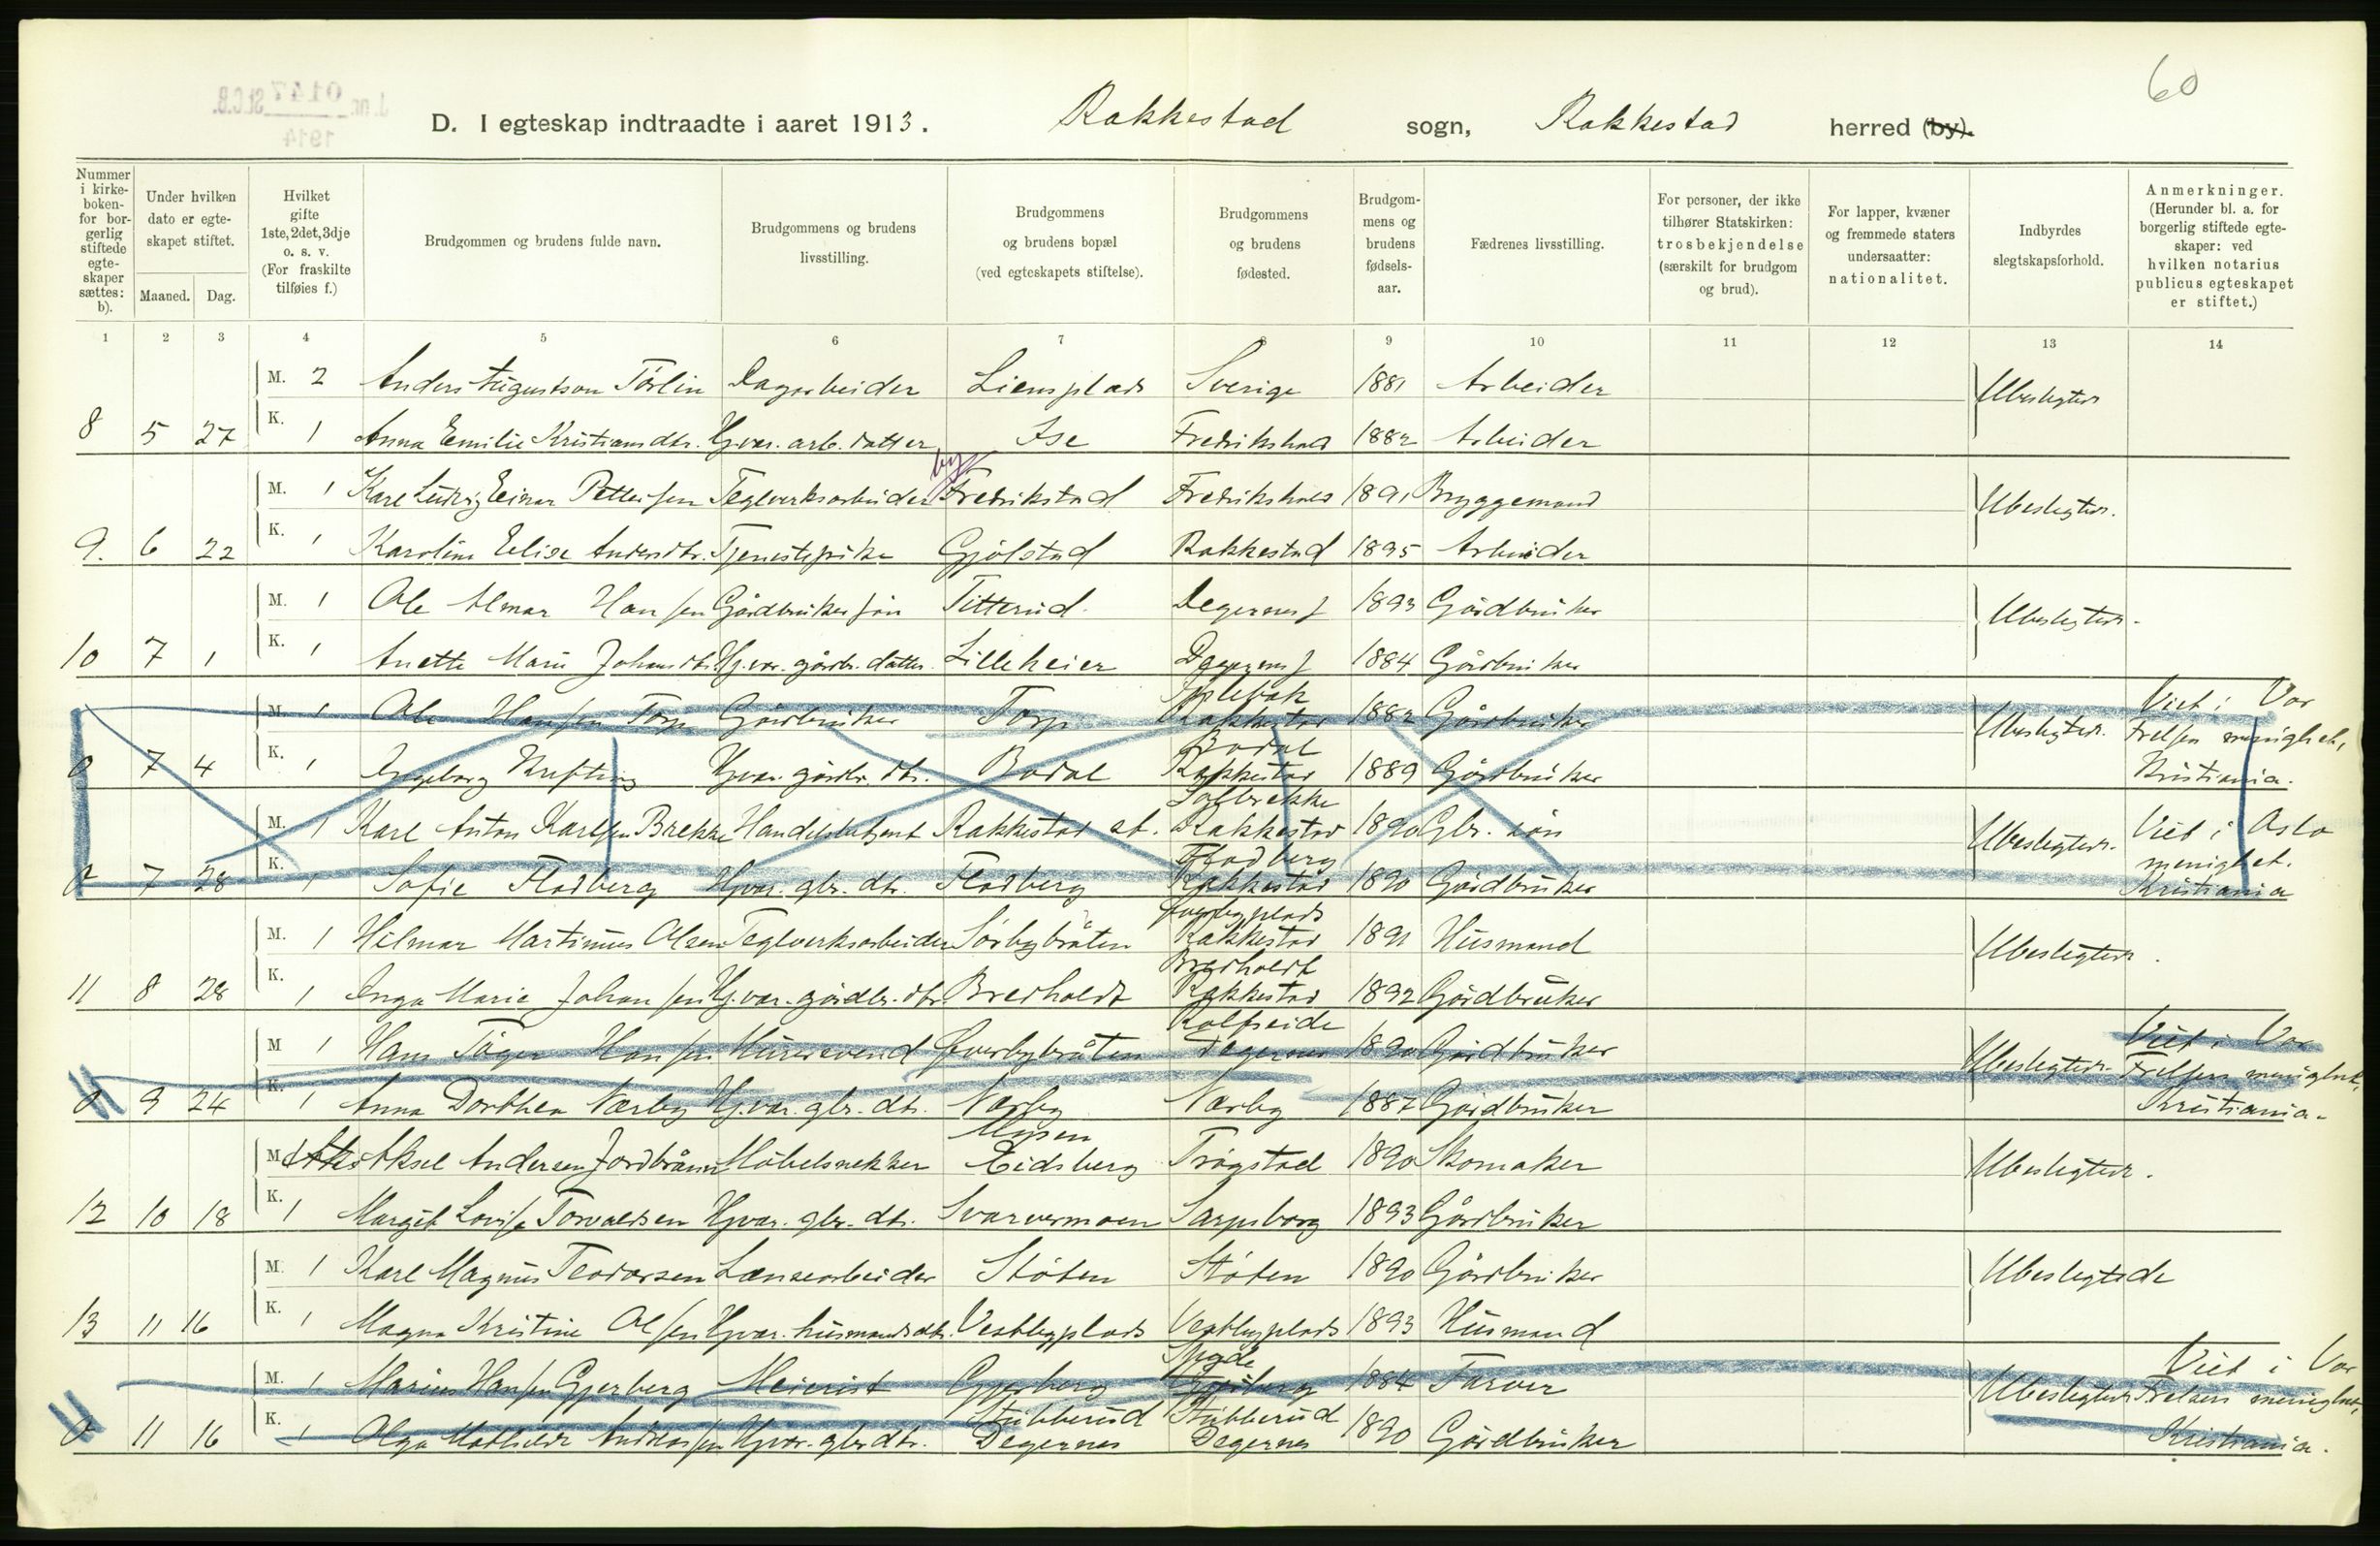 60
J. nr. 0147 St.C.B.
1914
D. I egteskap indtraadte i aaret 1913. Rakkestad sogn, Rakkestad herred (by).
Nummer i kirkeboken for borgerlig stiftede egteskaper sættes: b).
Under hvilken dato er egteskapet stiftet.
Maaned. Dag.
Hvilket gifte 1ste, 2det, 3dje o. s. v. (For fraskilte tilføies f.)
Brudgommen og brudens fulde navn.
Brudgommens og brudens livsstilling.
Brudgommens og brudens bopæl (ved egteskapets stiftelse).
Brudgommens og brudens fødested.
Brudgommens og brudens fødselsaar.
Fædrenes livsstilling.
For personer, der ikke tilhører Statskirken: trosbekjendelse (særskilt for brudgom og brud).
For lapper, kvæner og fremmede staters undersaatter: nationalitet.
Indbyrdes slegtskapsforhold.
Anmerkninger. (Herunder bl. a. for borgerlig stiftede egteskaper: ved hvilken notarius publicus egteskapet er stiftet.)
1 2 3 4 5 6 7 8 9 10 11 12 13 14
M. 2 Anders Augustson Törlin Dagarbeider Liensplads Sverige 1881 Arbeider Ubeslegtede
8 5 27 K. 1 Anna Emilie Kristiansdtr. Hj.vær. arb. datter Ise Fredrikshald 1882 Arbeider
by
M. 1 Karl Ludvig Einar Pettersen Teglverksarbeider Fredrikstad Fredrikshald 1891 Bryggemand Ubeslegtede.
9. 6 22 K. 1 Karoline Elise Andersdtr. Tjenestepike Gjølstad Rakkestad 1895 Arbeider
M. 1 Ole Almar Hansen Gårdbruker søn Titterud. Degernes 1893 Gårdbruker Ubeslegtede.
10 7 1 K. 1 Anette Marie Johansdtr. Hj.vær. gårdbr. datter Lilleheier Degernes 1884 Gårdbruker
M. 1 Ole Hansen Torp Gårdbruker Torp Rakkestad 1882 Gårdbruker Ubeslegtede. Viet i Vor Frelsers menighet, Kristiania.
0 7 4 K. 1 Ingeborg Hufting Hj.vær. gårdbr. dtr. Bodal Bodal Rakkestad 1889 Gårdbruker
M. 1 Karl Anton Karlsen Brekke Handelsbetjent Rakkestad st. Rakkestad 1890 Gbr. søn Ubeslegtede. Viet i Oslo menighet. Kristiania
0 7 28 K. 1 Sofie Flodberg Hj.vær. gbr. dtr. Flodberg Flodberg Rakkestad 1890 Gårdbruker
M. 1 Hilmar Martinus Olsen Teglverksarbeider Sørbybråten Rakkestad 1891 Husmand Ubeslegtede.
11 8 28 K. 1 Inga Marie Johansen Hj.vær. gårdbr. dtr. Bredholdt Bredholdt Rakkestad 1892 Gårdbruker
M 1 Hans Tøger Hansen Murersvend Øverbybråten Kolfseide Degernes 1890 Gårdbruker Ubeslegtede. Viet i Vor Frelsers menighet, Kristiania.
0 9 24 K. 1 Anna Dorthea Nærby Hj.vær. gbr. dtr. Nærby Nærby 1887 Gårdbruker
M. 1 Aksel Andersen Jordbråten Møbelsnekker Mysen Eidsberg Trøgstad 1890 Skomaker Ubeslegtede.
12 10 18 K. 1 Margit Lovise Torvaldsen Hj.vær. gbr. dtr. Svarvermoen Sarpsborg 1893 Gårdbruker
M. 1 Karl Magnus Teodorsen Lænsearbeider Støten Støten 1890 Gårdbruker Ubeslegtede
13 11 16 K. 1 Magna Kristine Olsen Hj.vær. husmandsdtr. Vestbyplads Vestbyplads 1893 Husmand
M. 1 Marius Hansen Gjerberg Meierist Gjerberg 1884 Farver Ubeslegtede Viet i Vor Frelsers menighet, Kristiania.
0 11 16 K. 1 Olga Mathilde Andreassen Hj.vær. gbr. dtr. Stubberud Degernes Stubberud Degernes 1890 Gårdbruker